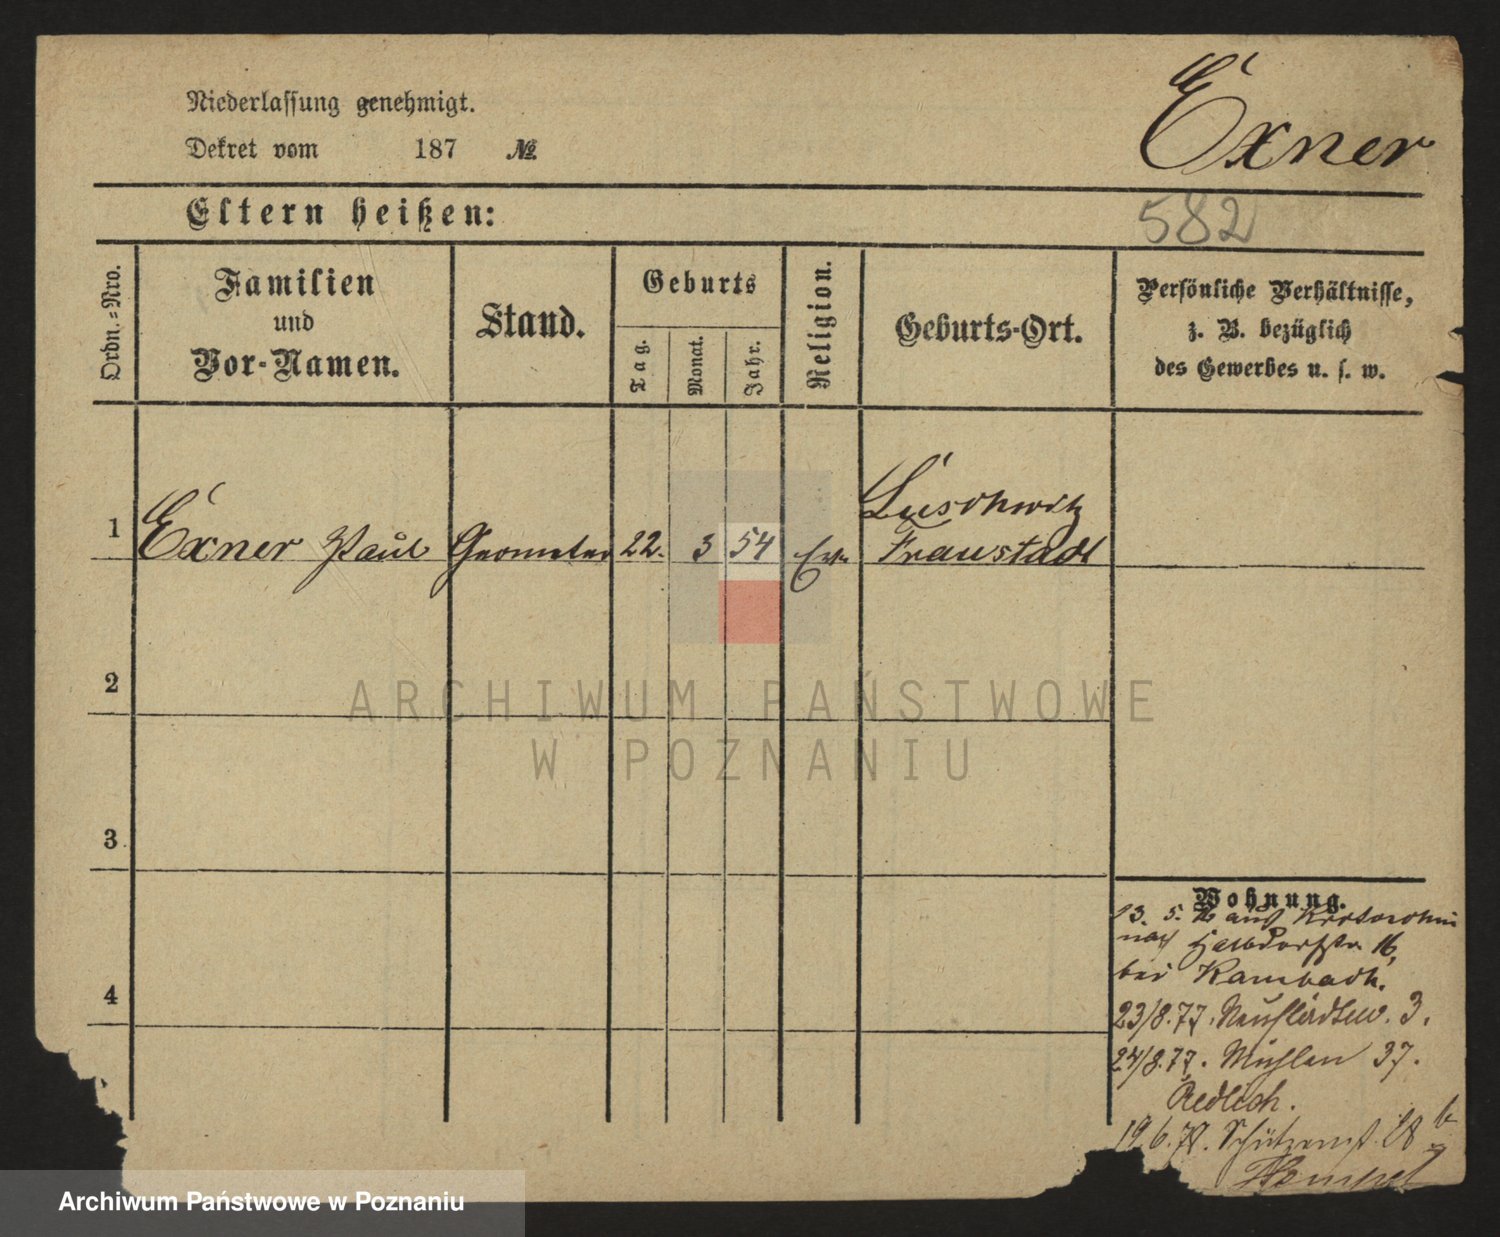 Exner
Niederlassung genehmigt.
Dekret vom 187 №
582
Eltern heißen:
Ordn.=Nro.
Familien
und
Vor-Namen.
Stand.
Geburts
Tag.
Monat.
Jahr.
Religion.
Geburts-Ort.
Persönliche Verhältnisse,
z. B. bezüglich
des Gewerbes u. s. w.
1 Exner Paul Geometer 22. 3 54 Ev. Luschwitz
Fraustadt
2
3
4
Wohnung.
13. 5. aus Krotoschin
nach Halbdorfstr. 16,
bei Kambach.
23/8.77. Neustädter. 3.
24/8.77. Mühlen 37.
Redlich.
19.6.78. Schützenst. 28 b
Hempel
ARCHIWUM PAŃSTWOWE
W POZNANIU
Archiwum Państwowe w Poznaniu